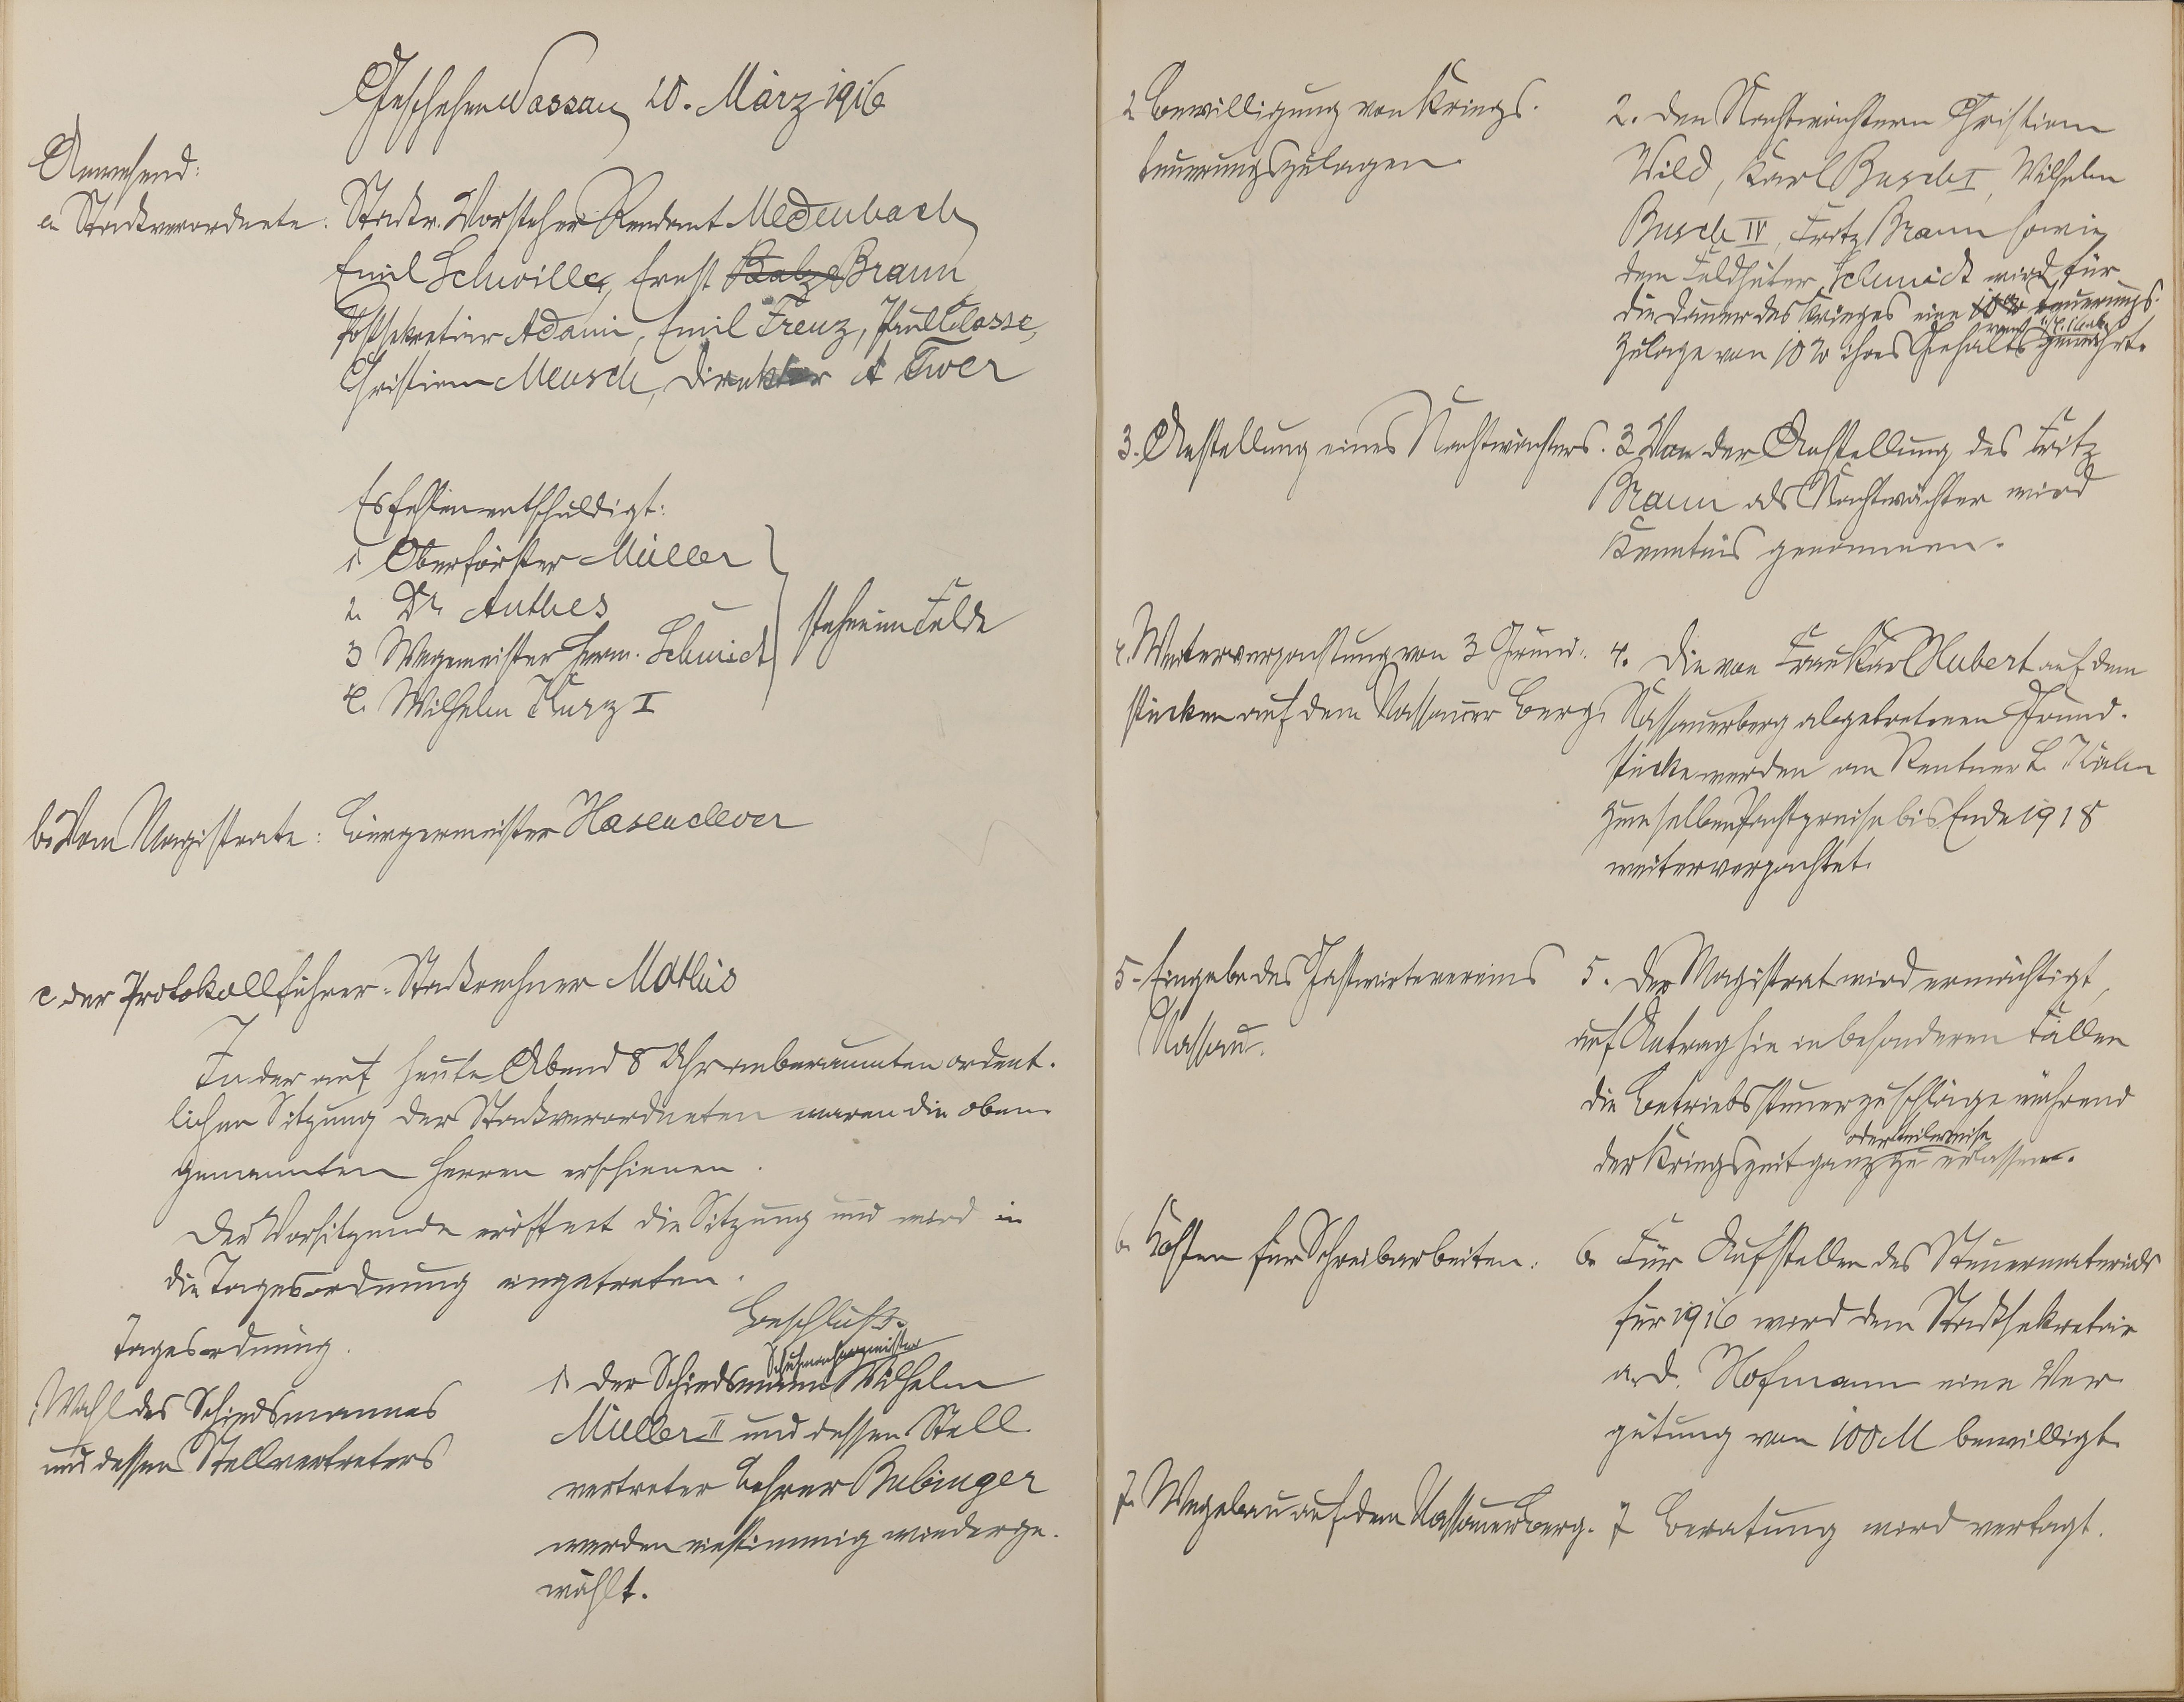 Geschehen Nassau, 20. März 1916
Anwesend:
a. Stadtverordnete: Stadtv. Vorsteher Rendant Medenbach
Emil Schwiller, Ernst Balze Braun
Postsekretär Adami, Emil Trenz, Paul Closse,
Christian Meusch, Direktor A Twer
Es fehlen entschuldigt:
1. Oberförster Müller
2. Dr. Anthes
3 Wegemeister Herm. Schmidt
4. Wilhelm Kurz I
stehen im Felde
b. Vom Magistrate: Bürgermeister Hasenclever
c der Protokollführer: Stadtrechner Mathis
In der auf heute Abend 8 Uhr anberaumten ordent-
lichen Sitzung der Stadtverordneten waren die oben-
genannten Herren erschienen.
Der Vorsitzende eröffnet die Sitzung und wird in
die Tagesordnung eingetreten.
Tagesordnung.
Beschluß.
1. Wahl des Schiedsmannes
und dessen Stellvertreters
1. Der Schiedsmann Schuhmachermeister Wilhelm
Müller II und dessen Stell-
vertreter Lehrer Bubinger
werden einstimmig wiederge-
wählt.
2 Bewilligung von Kriegs-
teuerungszulagen.
2. Den Nachtwächtern Christian
Wild, Karl Busch I, Wilhelm
Busch IV, Fritz Braun sowie
dem Feldhüter Schmidt wird für
die Dauer des Krieges eine 10% Teuerungs-
zulage von 10% ihres Gehalts gewährt.
3. Anstellung eines Nachtwächters.
3 Von der Anstellung des Fritz
Braun als Nachtwächter wird
Kenntnis genommen.
4. Weiterverpachtung von 3 Grund-
stücken auf dem Nassauer Berg.
4. Die von Frau Karl Hubert auf dem
Nassauerberg abgetretenen Grund-
stücke werden an Rentner L. Kühn
zum selben Pachtpreise bis Ende 1918
weiterverpachtet.
5. Eingabe des Gastwirtevereins
Nassau.
5. Der Magistrat wird ermächtigt,
auf Antrag hin in besonderen Fällen
die Betriebssteuerzuschläge während
der Kriegszeit ganz oder teilweise zu erlassen.
6. Kosten für Schreibarbeiten.
6. Für Aufstellen des Steuermaterials
für 1916 wird dem Stadtsekretär
a.D. Hofmann eine Ver-
gütung von 100 M bewilligt.
7. Wegebau auf dem Nassauerberg.
7 Beratung wird vertagt.